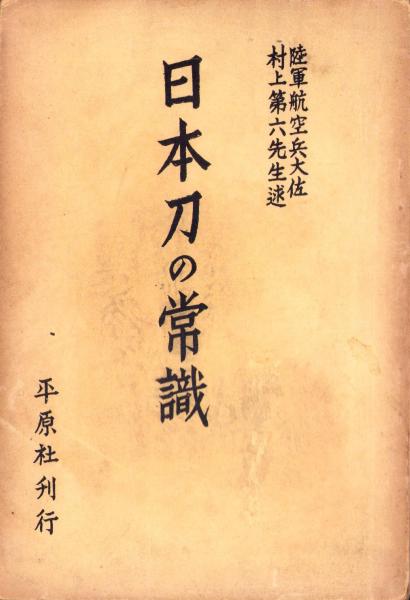 陸軍航空兵大佐
村上第六先生述
日本刀の常識
平原社刊行